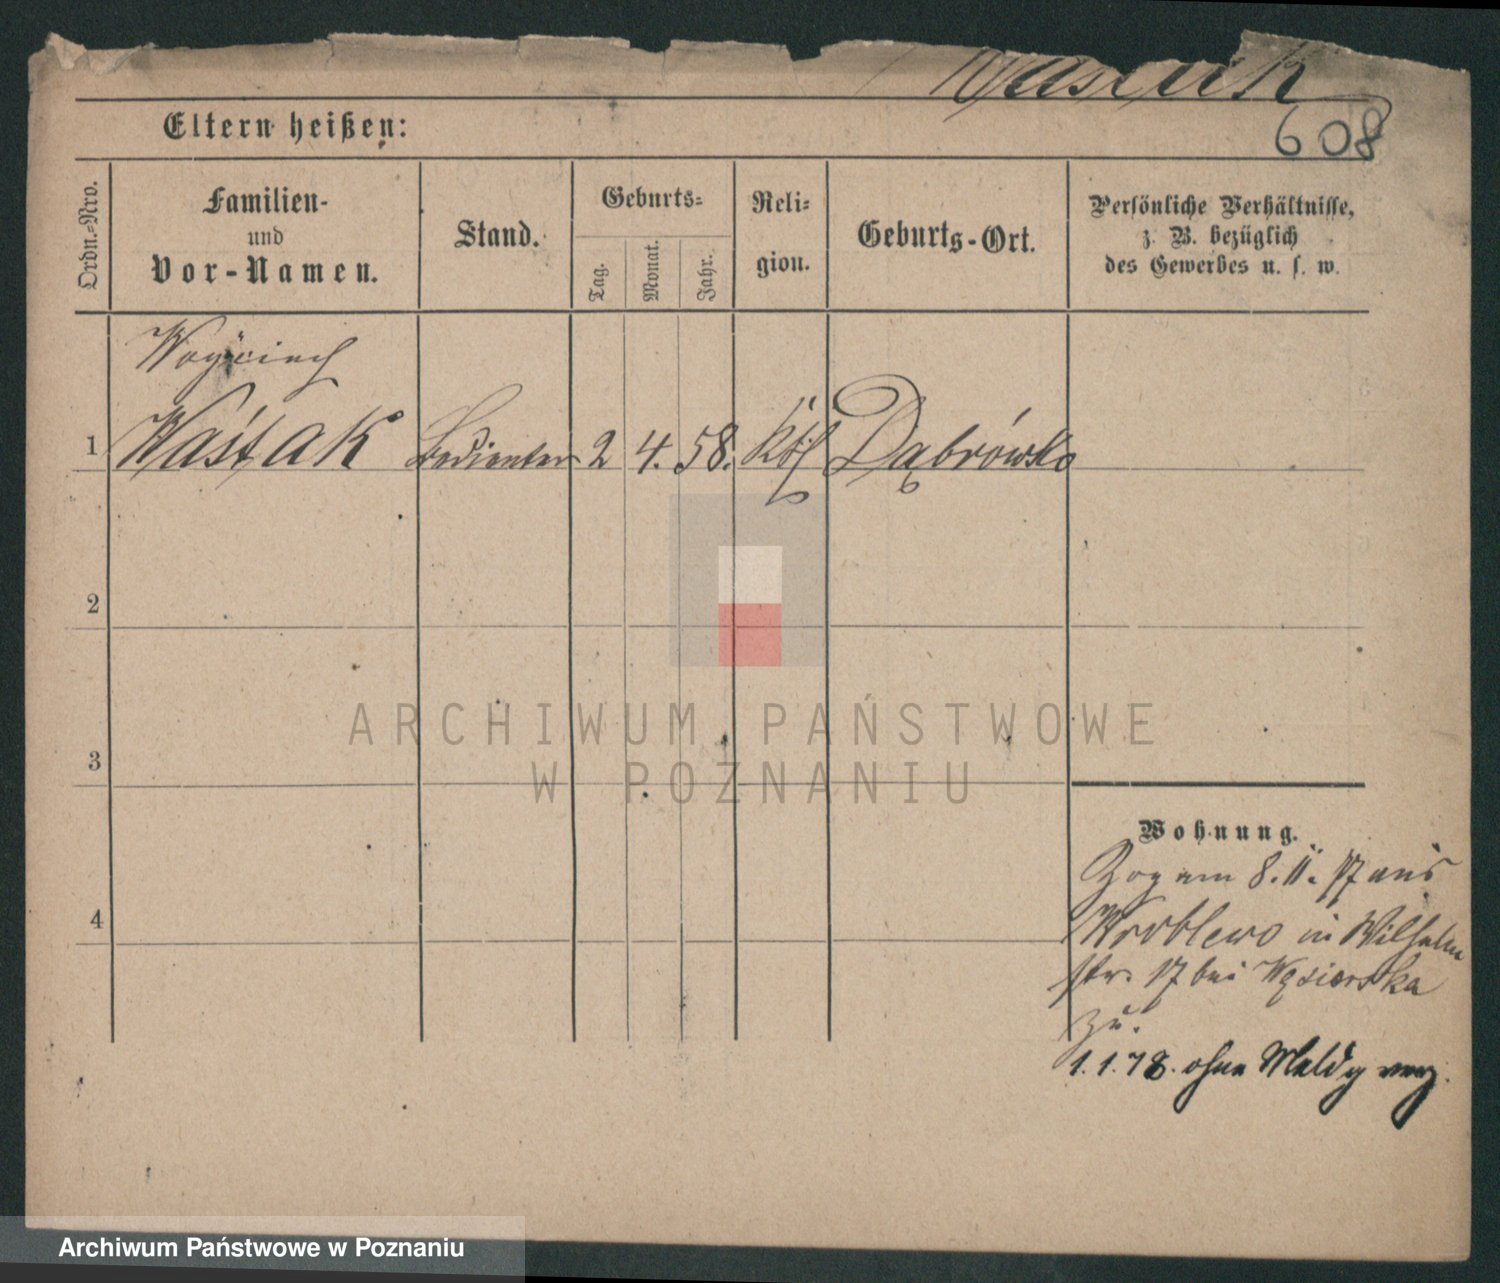 Waśtak
608
Eltern heißen:
Ordn.-Nro.
Familien-
und
Vor-Namen.
Stand.
Geburts-
Tag.
Monat.
Jahr.
Reli-
gion.
Geburts-Ort.
Persönliche Verhältnisse,
z. B. bezüglich
des Gewerbes u. s. w.
Woyciech
1 Waśtak Bedienter 2 4. 58. kth Dąbrówko
2
3
4
Wohnung.
Zog am 8. 11. 77 aus
Wroblewo in Wilhelm
str. 17 bei Węsierska
zu.
1. 1. 78. ohne Meldg verz.
ARCHIWUM PAŃSTWOWE
W POZNANIU
Archiwum Państwowe w Poznaniu